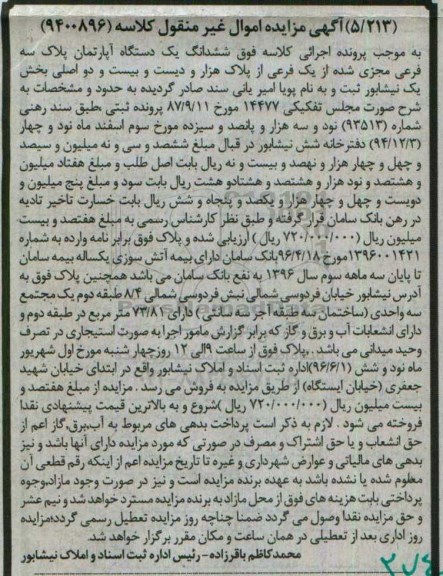 (۵/۲۱۳) آگهی مزایده اموال غیر منقول کلاسه (۹۴۰۰۸۹۶)
به موجب پرونده اجرائی کلاسه فوق ششدانگ یک دستگاه آپارتمان پلاک سه
فرعی مجزی شده از یک فرعی از پلاک هزار و دیست و بیست و دو اصلی بخش
یک نیشابور ثبت و به نام پویا امیر یانی سند صادر گردیده به حدود و مشخصات به
شرح صورت مجلس تفکیکی ۱۴۴۷۷ مورخ ۸۷/۹/۱۱ پرونده ثبتی ،طبق سند رهنی
شماره (۹۳۵۱۳) نود و سه هزار و پانصد و سیزده مورخ سوم اسفند ماه نود و چهار
(۹۴/۱۲/۳) دفترخانه شش نیشابور در قبال مبلغ ششصد و سی و نه میلیون و سیصد
و چهل و چهار هزار و نهصد و بیست و نه ریال بابت اصل طلب و مبلغ هفتاد میلیون
و هشتصد و نود هزار و هشتصد و هشتادو هشت ریال بابت سود و مبلغ پنج میلیون و
دویست و چهل و چهار هزار و یکصد و پنجاه و شش ریال بابت خسارت تاخیر تادیه
در رهن بانک سامان قرار گرفته و طبق نظر کارشناس رسمی به مبلغ هفتصد و بیست
میلیون ریال (۷۲۰/۰۰۰/۰۰۰ ریال ) ارزیابی شده و پلاک فوق برابر نامه وارده به شماره
۱۳۹۶۰۰۱۴۲۱مورخ ۹۶/۴/۱۸بانک سامان دارای بیمه آتش سوزی یکساله بیمه سامان
تا پایان سه ماهه سوم سال ۱۳۹۶ به نفع بانک سامان می باشد همچنین پلاک فوق به
آدرس نیشابور خیابان فردوسی شمالی نبش فردوسی شمالی ۸/۴ طبقه دوم یک مجتمع
سه واحدی (ساختمان سه طبقه آجر سه سانتی ) دارای ۷۳/۸۱ متر مربع در طبقه دوم و
دارای انشعابات آب و برق و گاز که برابر گزارش مامور اجرا به صورت استیجاری در تصرف
وحید میدانی می باشد . .پلاک فوق از ساعت ۹الی ۱۲ روزچهار شنبه مورخ اول شهریور
ماه نود و شش (۹۶/۶/۱)اداره ثبت اسناد و املاک نیشابور واقع در ابتدای خیابان شهید
جعفری (خیابان ایستگاه) از طریق مزایده به فروش می رسد . مزایده از مبلغ هفتصد و
بیست میلیون ریال (۷۲۰/۰۰۰/۰۰۰ ریال )شروع و به بالاترین قیمت پیشنهادی نقدا
فروخته می شود . لازم به ذکر است پرداخت بدهی های مربوط به آب،برق،گاز اعم از
حق انشعاب و یا حق اشتراک و مصرف در صورتی که مورد مزایده دارای آنها باشد و نیز
بدهی های مالیاتی و عوارض شهرداری و غیره تا تاریخ مزایده اعم از اینکه رقم قطعی آن
معلوم شده یا نشده باشد به عهده برنده مزایده است و نیز در صورت وجود مازاد،وجوه
پرداختی بابت هزینه های فوق از محل مازاد به برنده مزایده مسترد خواهد شد و نیم عشر
و حق مزایده نقدا وصول می گردد ضمنا چناچه روز مزایده تعطیل رسمی گردد،مزایده
روز اداری بعد از تعطیلی در همان ساعت و مکان مقرر برگزار خواهد شد.
محمدکاظم باقرزاده- رئیس اداره ثبت اسناد و املاک نیشابور
۲۷۴